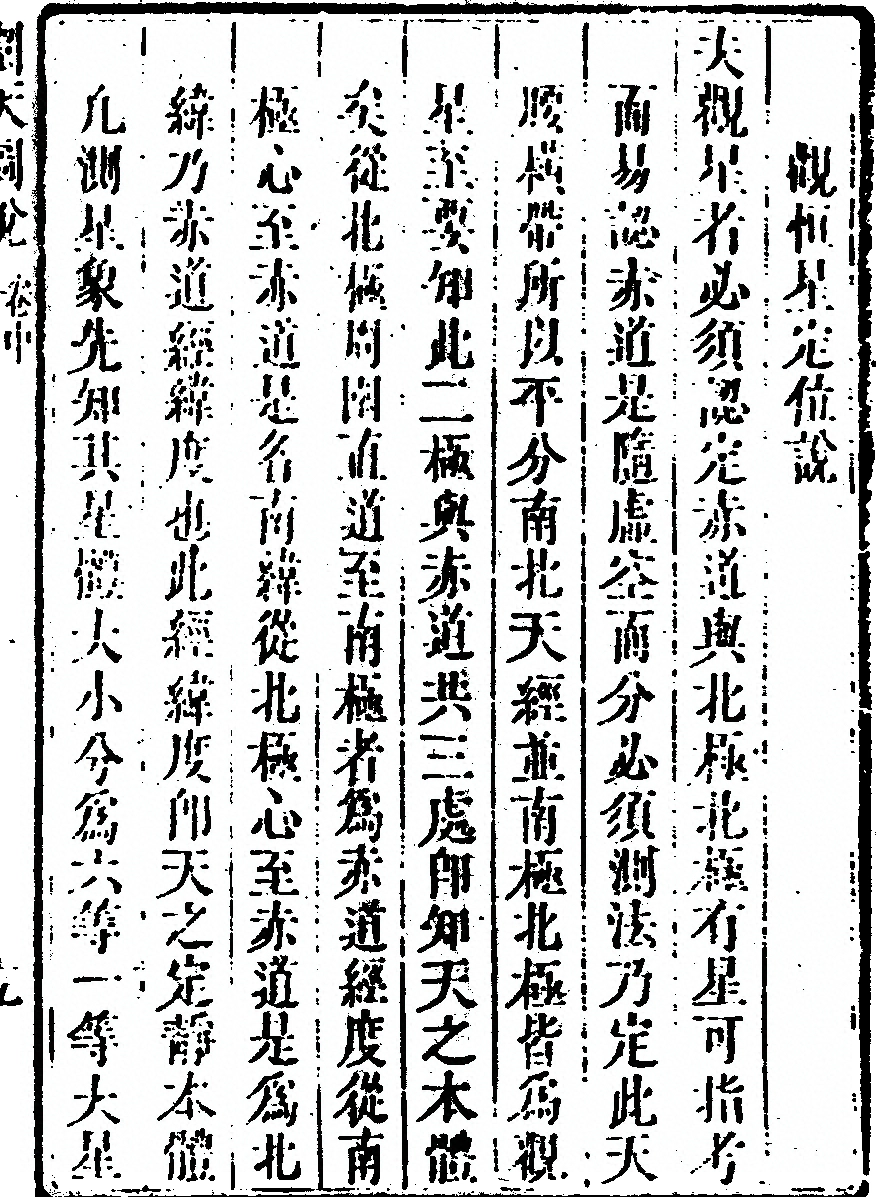 觀恒星定位說
夫觀星者必須認定赤道與北極北極有星可指考
而易認赤道是隨虛空而分必須測法乃定此天
腰橫帶所以平分南北天經並南極北極皆為觀
星至要知此二極與赤道共三處即知天之本體
矣從北極周圍直道至南極者為赤道經度從南
極心至赤道是名南緯從北極心至赤道是為北
緯乃赤道經緯度也此經緯度即天之定靜本體
凡測星象先知其星體大小分為六等一等大星
測天圖說 卷中 九